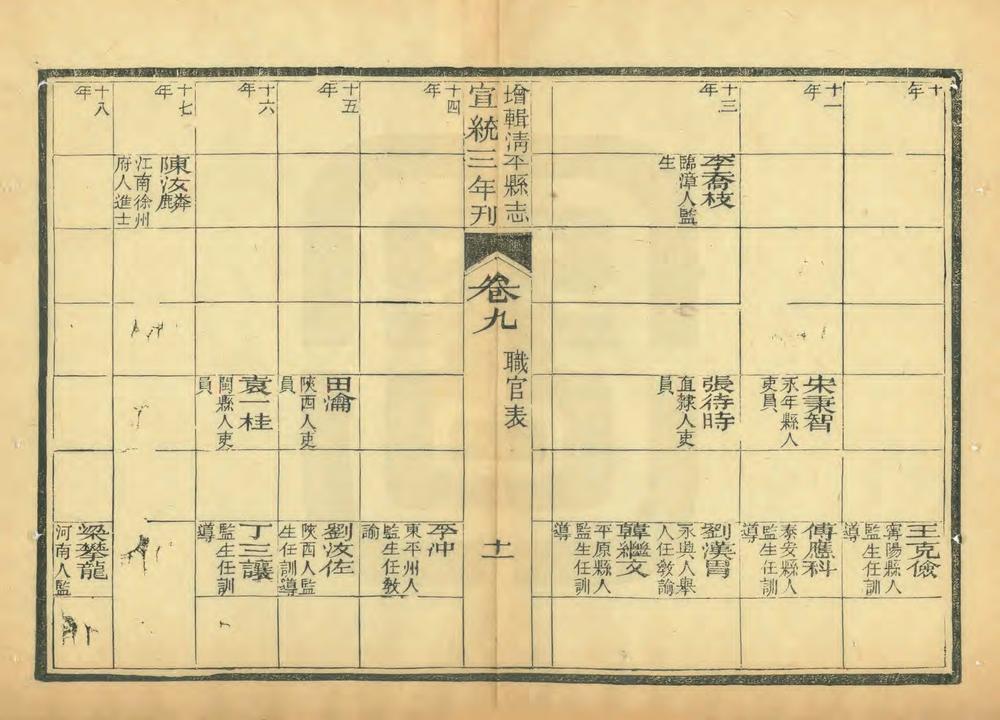 十年
王克儉
寧陽縣人
監生任訓
導
十一年
宋秉智
永年縣人
吏員
傅應科
泰安縣人
監生任訓
導
十三年
李喬枝
臨漳人監
生
張待時
直隸人吏
員
劉漢胄
永興人舉
人任教諭
韓繼文
平原縣人
監生任訓
導
增輯清平縣志
宣統三年刊
卷九
職官表
十一
十四年
李沖
東平州人
監生任教
諭
十五年
田瀹
陝西人吏
員
劉汝佐
陝西人監
生任訓導
十六年
袁一桂
閩縣人吏
員
丁三讓
監生任訓
導
十七年
陳汝麟
江南徐州
府人進士
十八年
梁攀龍
河南人監